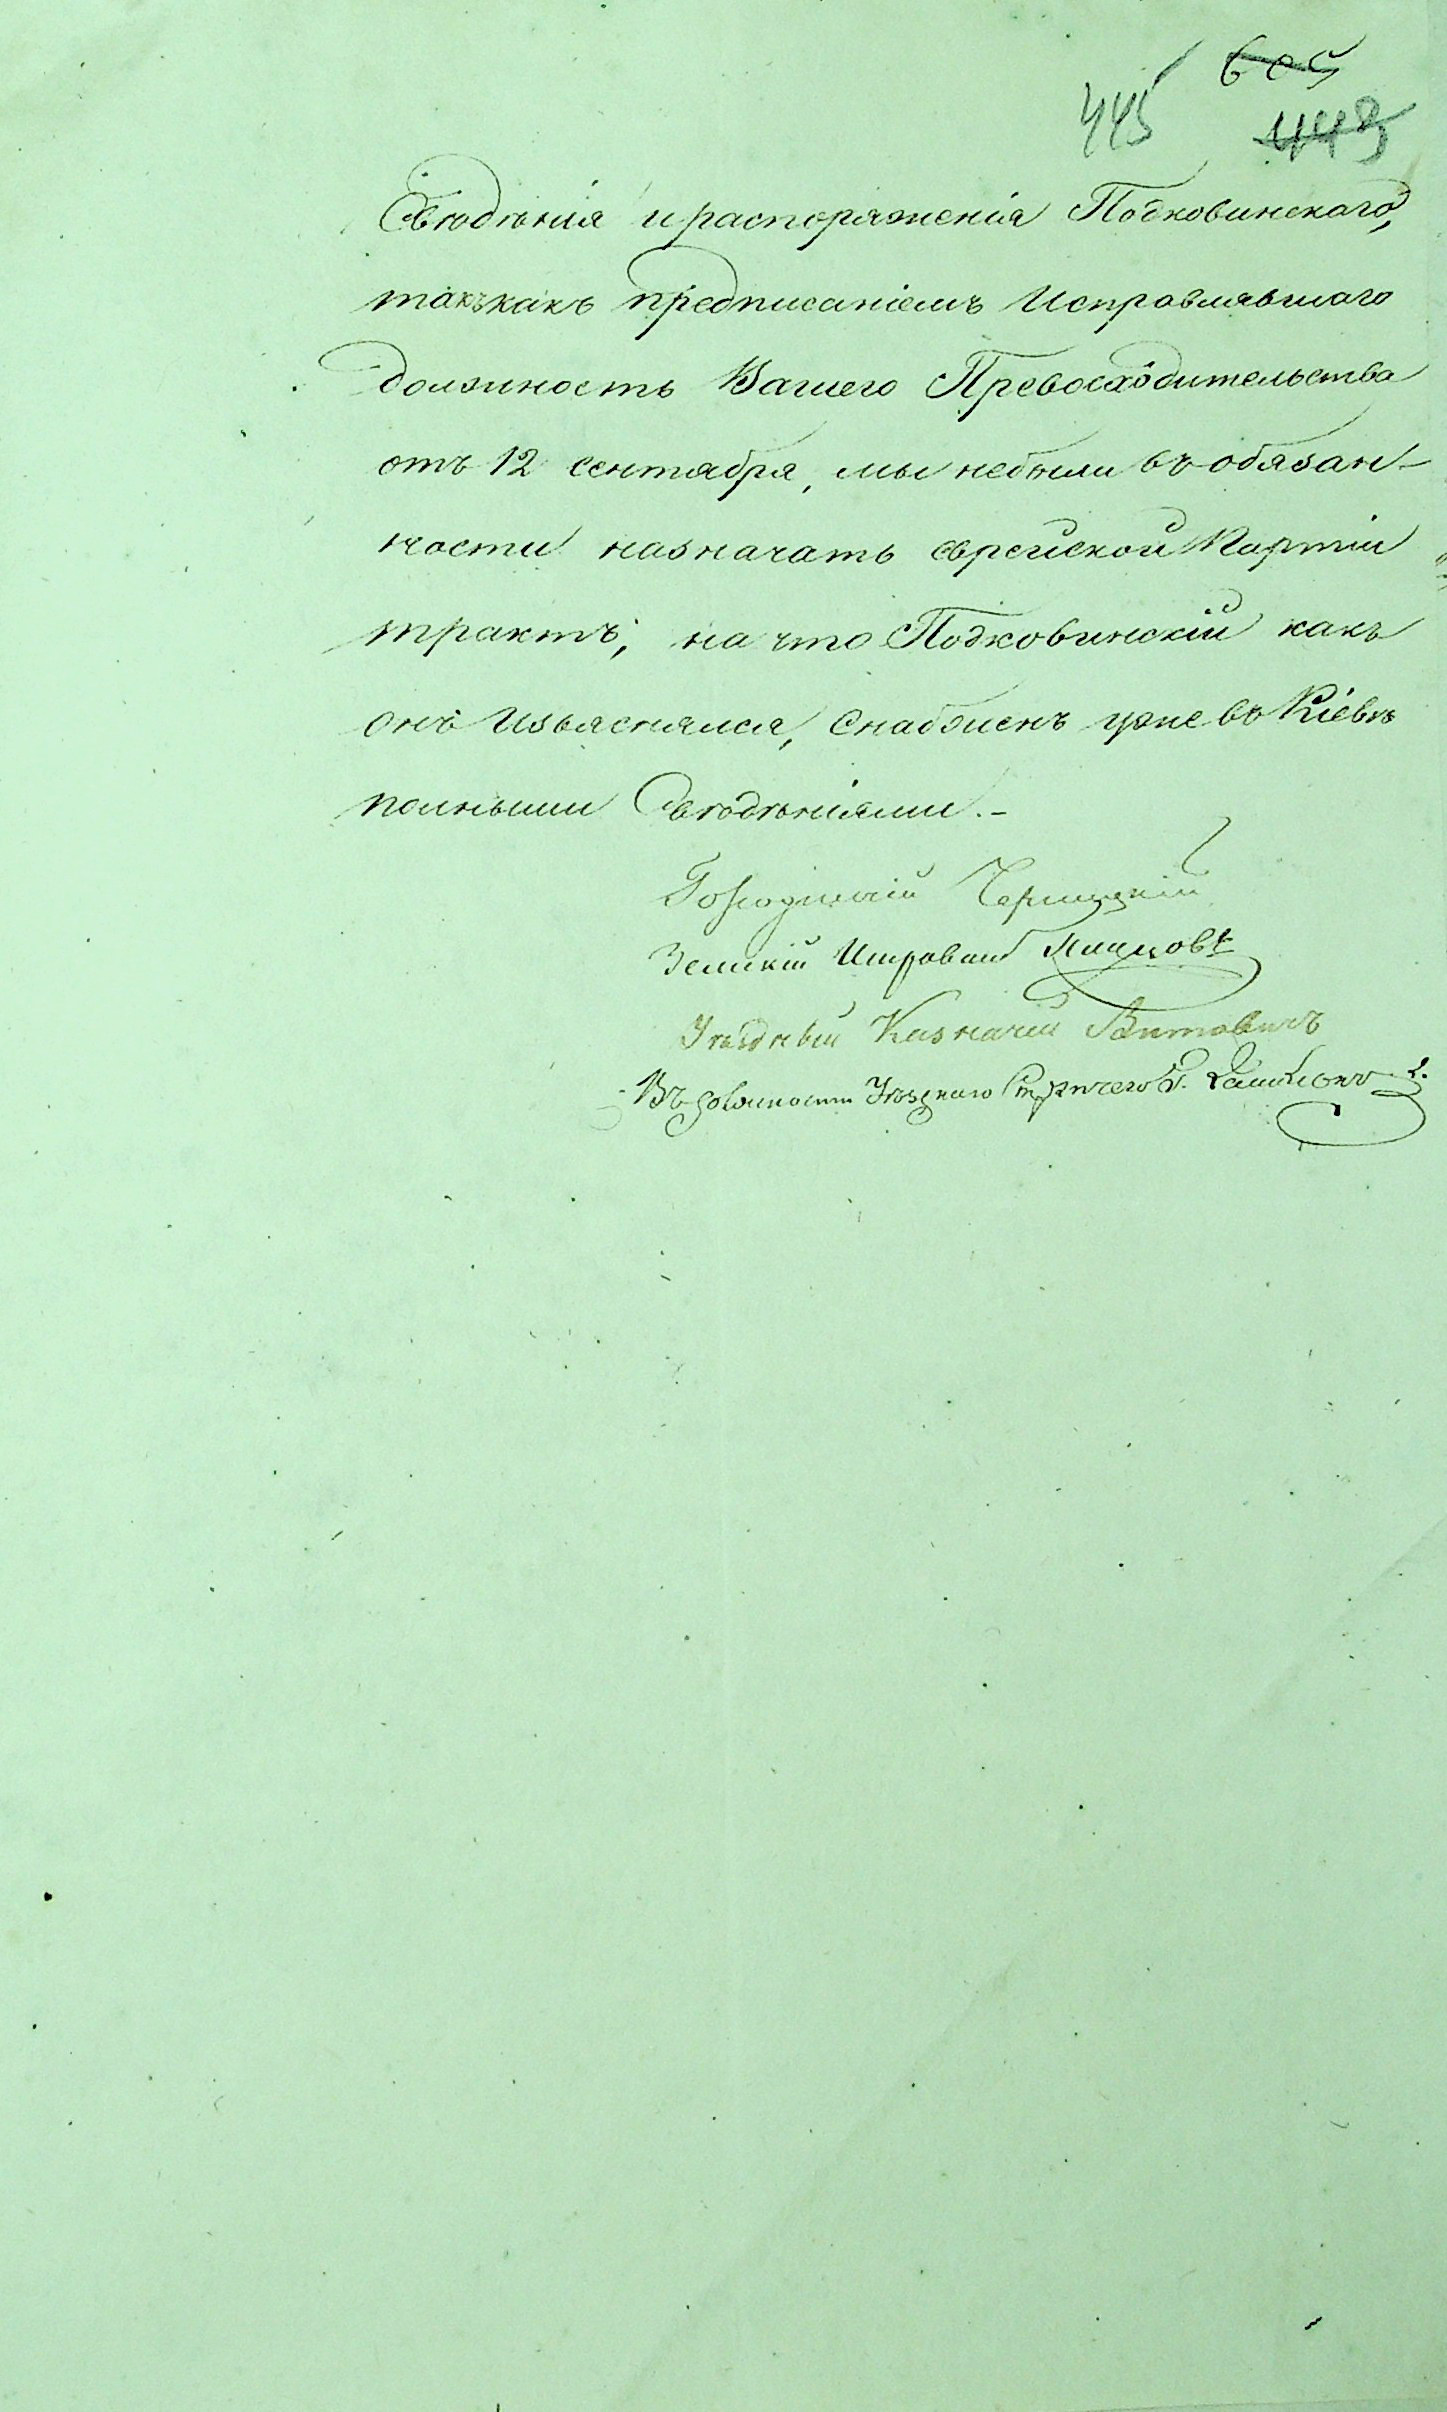 605
445 443
Свѣденія и распоряженія Подковинскаго,
такъ какъ предписаніемъ Исправлявшаго
должность Вашего Превосходительства
отъ 12 сентября, мы небыли въ обязан-
ности назначать еврейской Партіи
трактъ, на что Подковинскій какъ
онъ Изъяснялся, Снабженъ уже въ Кіевѣ
полными Свѣденіями.-
Городничій
Земскій Исправникъ
Уѣздный Казначей Витовичъ
Въ должности Уѣзднаго Стряпчего